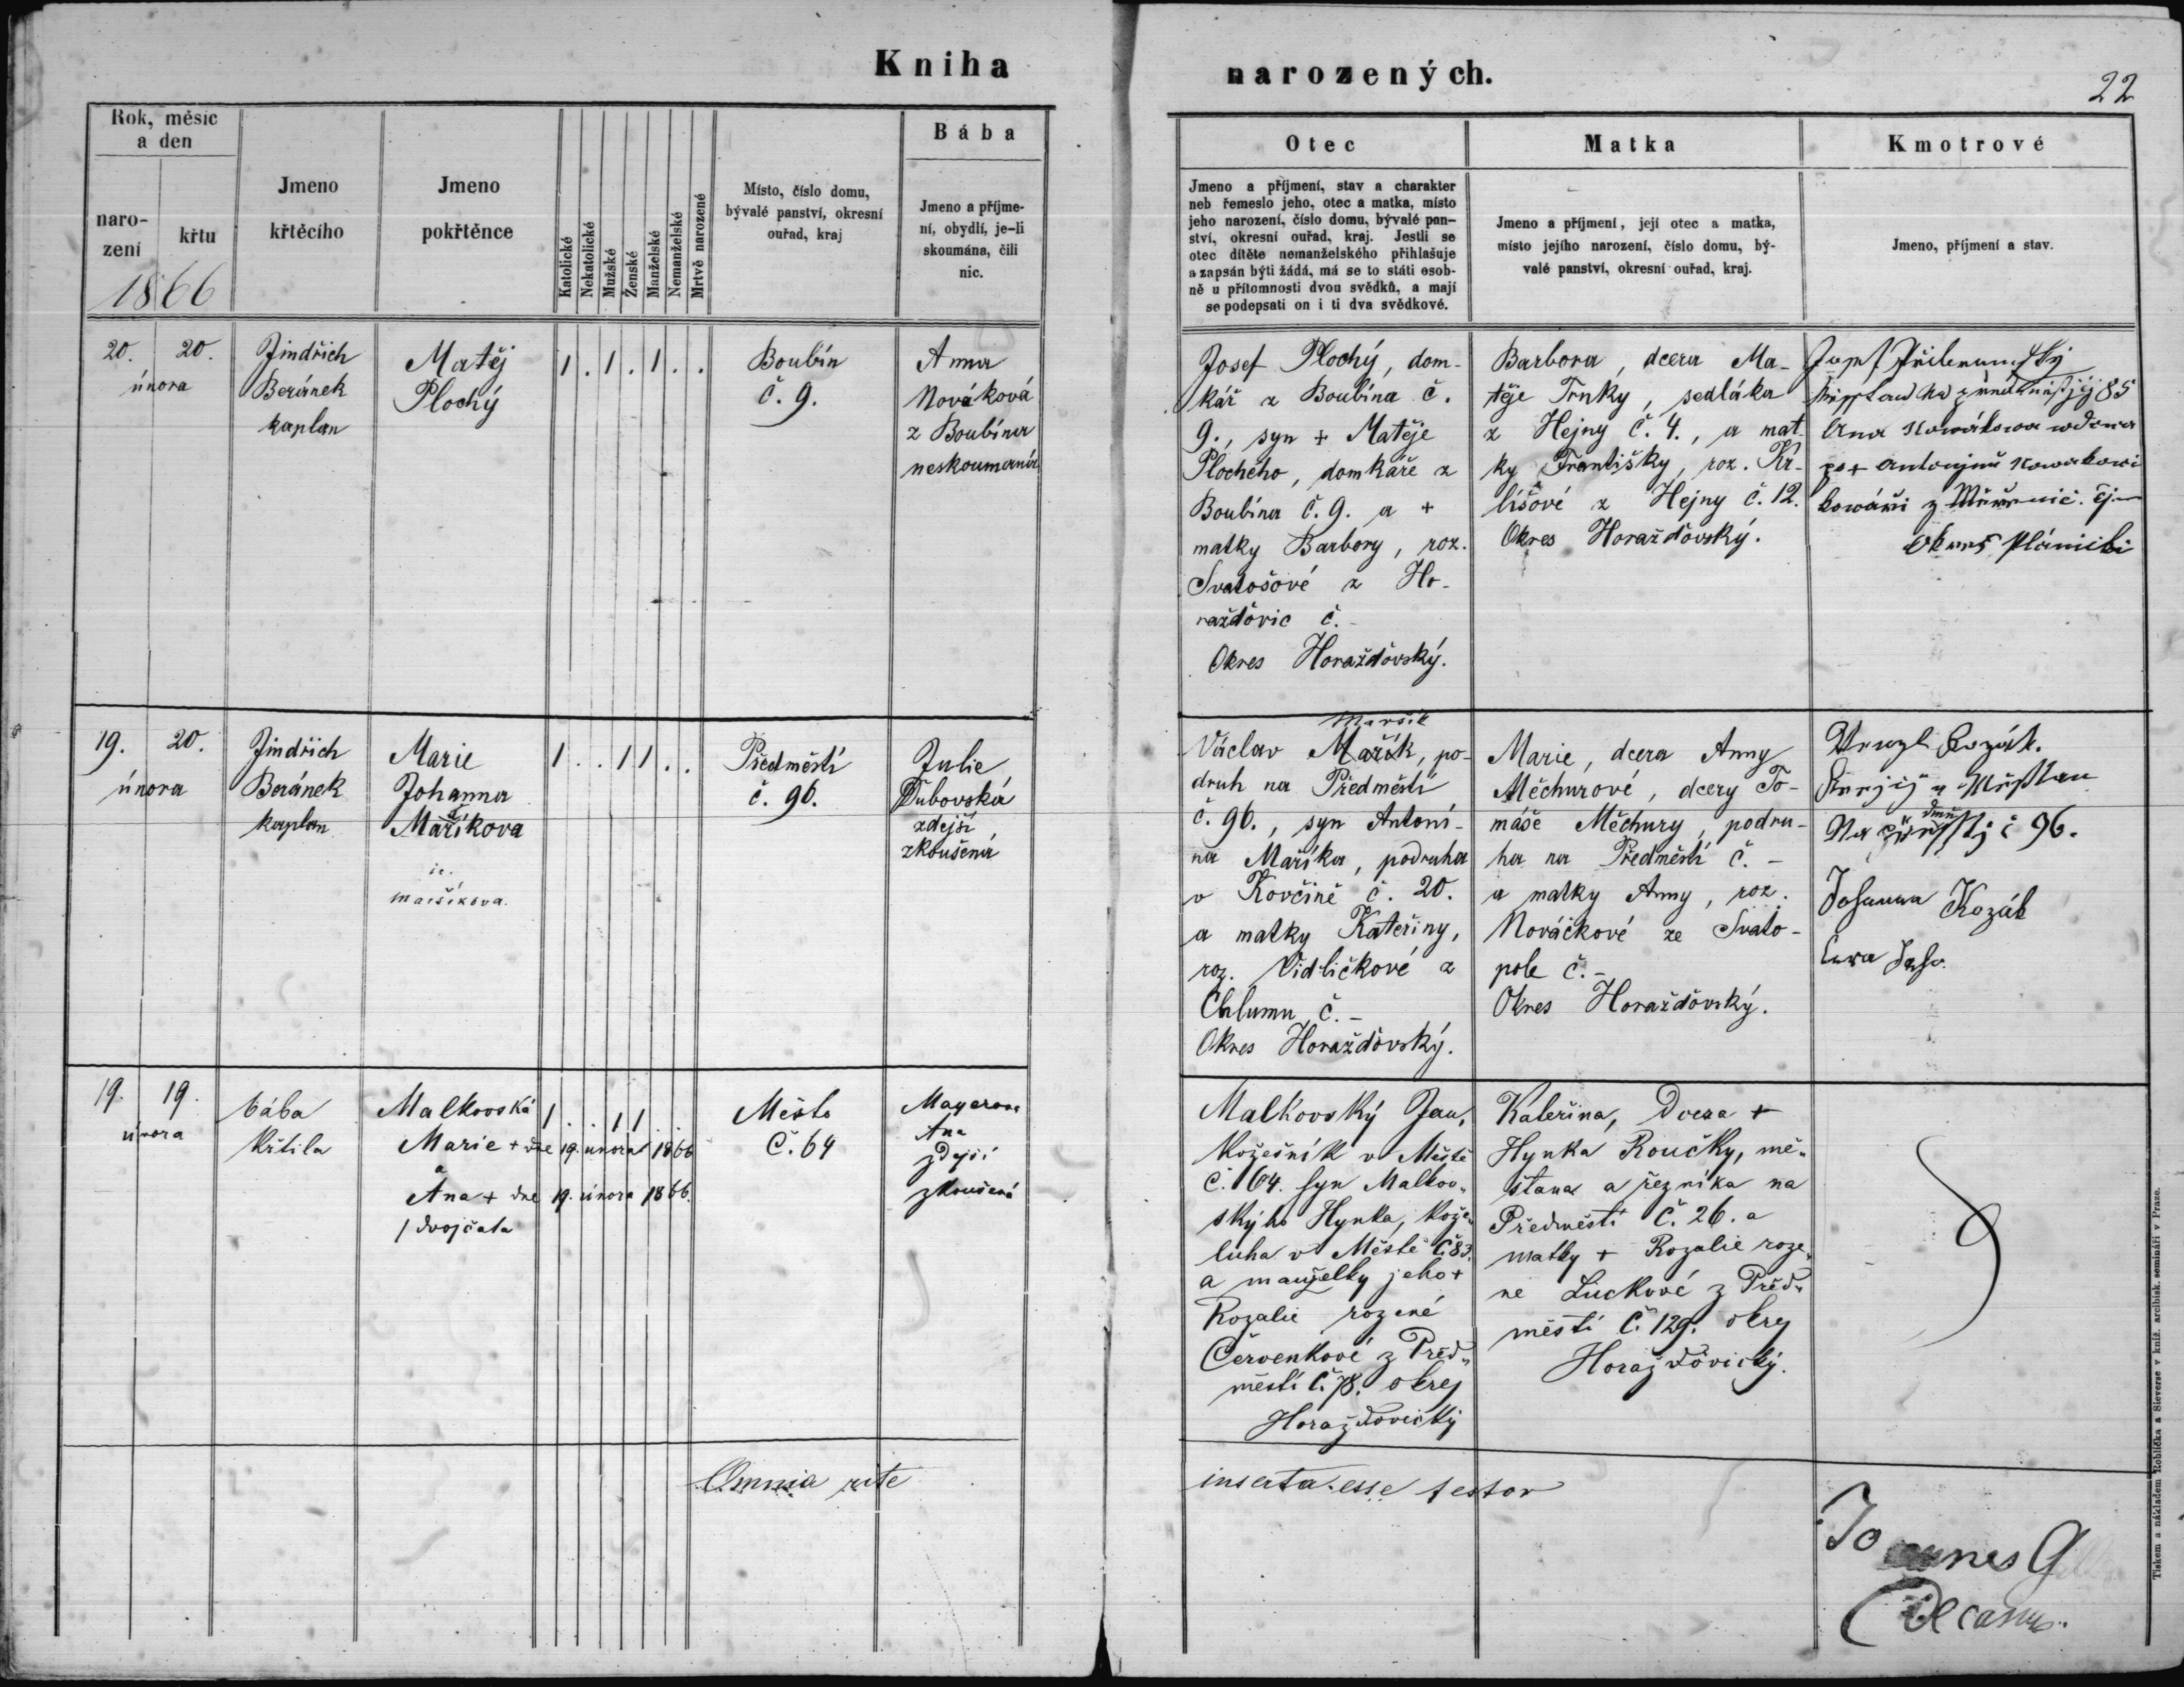 Kniha
narozených.
22
Rok, měsíc
a den
naro-
zení
křtu
1866
Jmeno
křtěcího
Jmeno
pokřtěnce
Katolické
Nekatolické
Mužské
Ženské
Manželské
Nemanželské
Mrtvě narozené
Místo, číslo domu,
bývalé panství, okresní
ouřad, kraj
Bába
Jmeno a příjme-
ní, obydlí, je-li
skoumána, čili
nic.
Otec
Jmeno a příjmení, stav a charakter
neb řemeslo jeho, otec a matka, místo
jeho narození, číslo domu, bývalé pan-
ství, okresní ouřad, kraj. Jestli se
otec dítěte nemanželského přihlašuje
a zapsán býti žádá, má se to státi osob-
ně u přítomnosti dvou svědků, a mají
se podepsati on i ti dva svědkové.
Matka
Jmeno a příjmení, její otec a matka,
místo jejího narození, číslo domu, bý-
valé panství, okresní ouřad, kraj.
Kmotrové
Jmeno, příjmení a stav.
20. 20.
února
Jindřich
Beránek
kaplan
Matěj
Plochý
1 . 1 . 1 . .
Boubín
č. 9.
Anna
Nováková
z Boubína
neskoumaná
Josef Plochý, dom-
kář z Boubína č.
9., syn + Matěje
Plochého, domkáře z
Boubína č. 9. a +
matky Barbory, roz.
Svatošové z Ho-
ražďovic č. -
Okres Horažďovský.
Barbora, dcera Ma-
těje Trnky, sedláka
z Hejny č. 4., a mat-
ky Františky, roz. Kr-
líšové z Hejny č. 12.
Okres Horažďovský.
85
Ana Nowákowa wdowa
po + Antonjnu Nowakowi
kowáři z
Okres Plánicki
19. 20.
února
Jindřich
Beránek
kaplan
Marie
Johanna
Maříkova
ie.
maršíkova.
1 . . 1 1 . .
Předměstí
č. 96.
Julie
Dubovská
zdejší
zkoušená
Maršík
Václav Mařík, po-
druh na Předměstí
č. 96., syn Antoní-
na Maříka, podruha
v Kovčině č. 20.
a matky Kateřiny,
roz. Vidličkové z
Chlumu č. -
Okres Horažďovský.
Marie, dcera Anny
Měchurové, dcery To-
máše Měchury, podru-
ha na Předměstí č. -
a matky Anny, roz.
Nováčkové ze Svato-
pole č. -
Okres Horažďovský.
Kozák.
Na č 96.
Johanna Kozák
19. 19.
února
bába
křtila
Malkovská
Marie + dne 19. února 1866
a
Ana + dne 19. února 1866.
/ dvojčata
1 . . 1 1 . .
Město
Č. 64
Mayerova
Ana
zdejší
zkoušená
Malkovský Jan,
kožešník v Městě
Č. 64. syn Malkov-
skýho Hynka, kože-
luha v Městě Č. 83.
a manželky jeho +
Rozalie rozené
Červenkové z Před-
městí Č. 78. okres
Horažďovický
Kateřina, Dcera +
Hynka Roučky, mě-
šťana a řezníka na
Předměstí Č. 26. a
matky + Rozalie roze-
ne Luckové z Před-
městí Č. 129. okres
Horažďovický.
Omnia rite
inserta esse testor
Joannes
Decanus.
Tiskem a nákladem Rohlíčka a Sieverse v kníž. arcibisk. semináři v Praze.